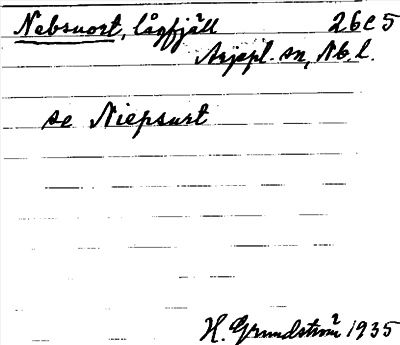 Nabsuort, lågfjäll 26C5
Arjepl. sn, Nb. l.
se Niepsurt
H. Grundström 1935